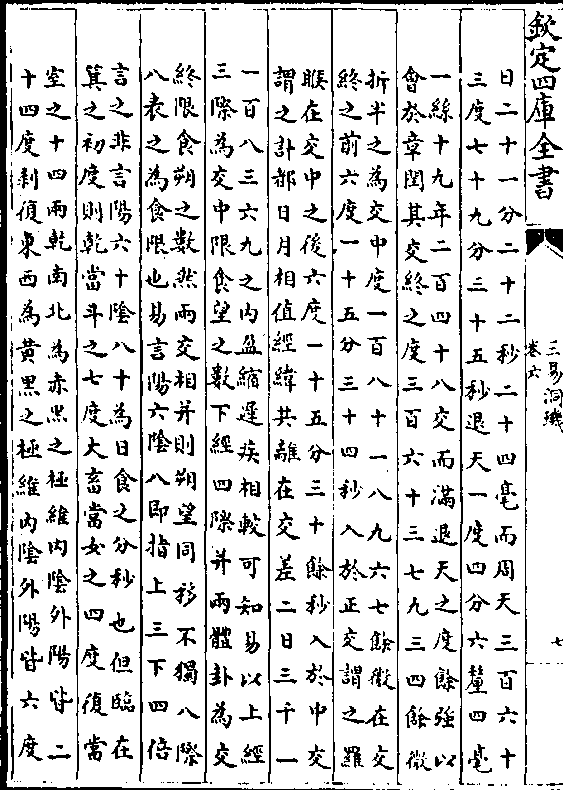 欽定四庫全書
三易洞璣
卷六
七
日二十一分二十二秒二十四毫而周天三百六十
三度七十九分三十五秒退天一度四分六釐四毫
一綜十九年二百四十八交而滿退天之度餘強以
會於章閏其交終之度三百六十三七九三四餘微
折半之為交中度一百八十一八九六七餘微在交
終之前六度一十五分三十四秒入於正交謂之羅
睺在交中之後六度一十五分三十餘秒入於中交
謂之計都日月相值經緯共離在交差二日三千一
一百八三六九之内盈縮遲疾相較可知易以上經
三際為交中限食望之數下經四際并兩體卦為交
終限食朔之數然兩交相并則朔望同移不獨八際
八表之為食限也易言陽六陰八即指上三下四倍
言之非言陽六十陰八十為日食之分秒也但臨在
箕之初度則乾當斗之七度大畜當女之四度復當
室之十四兩乾南北為赤黑之極維内陰外陽皆二
十四度剥復東西為黄黑之極維内陰外陽皆六度